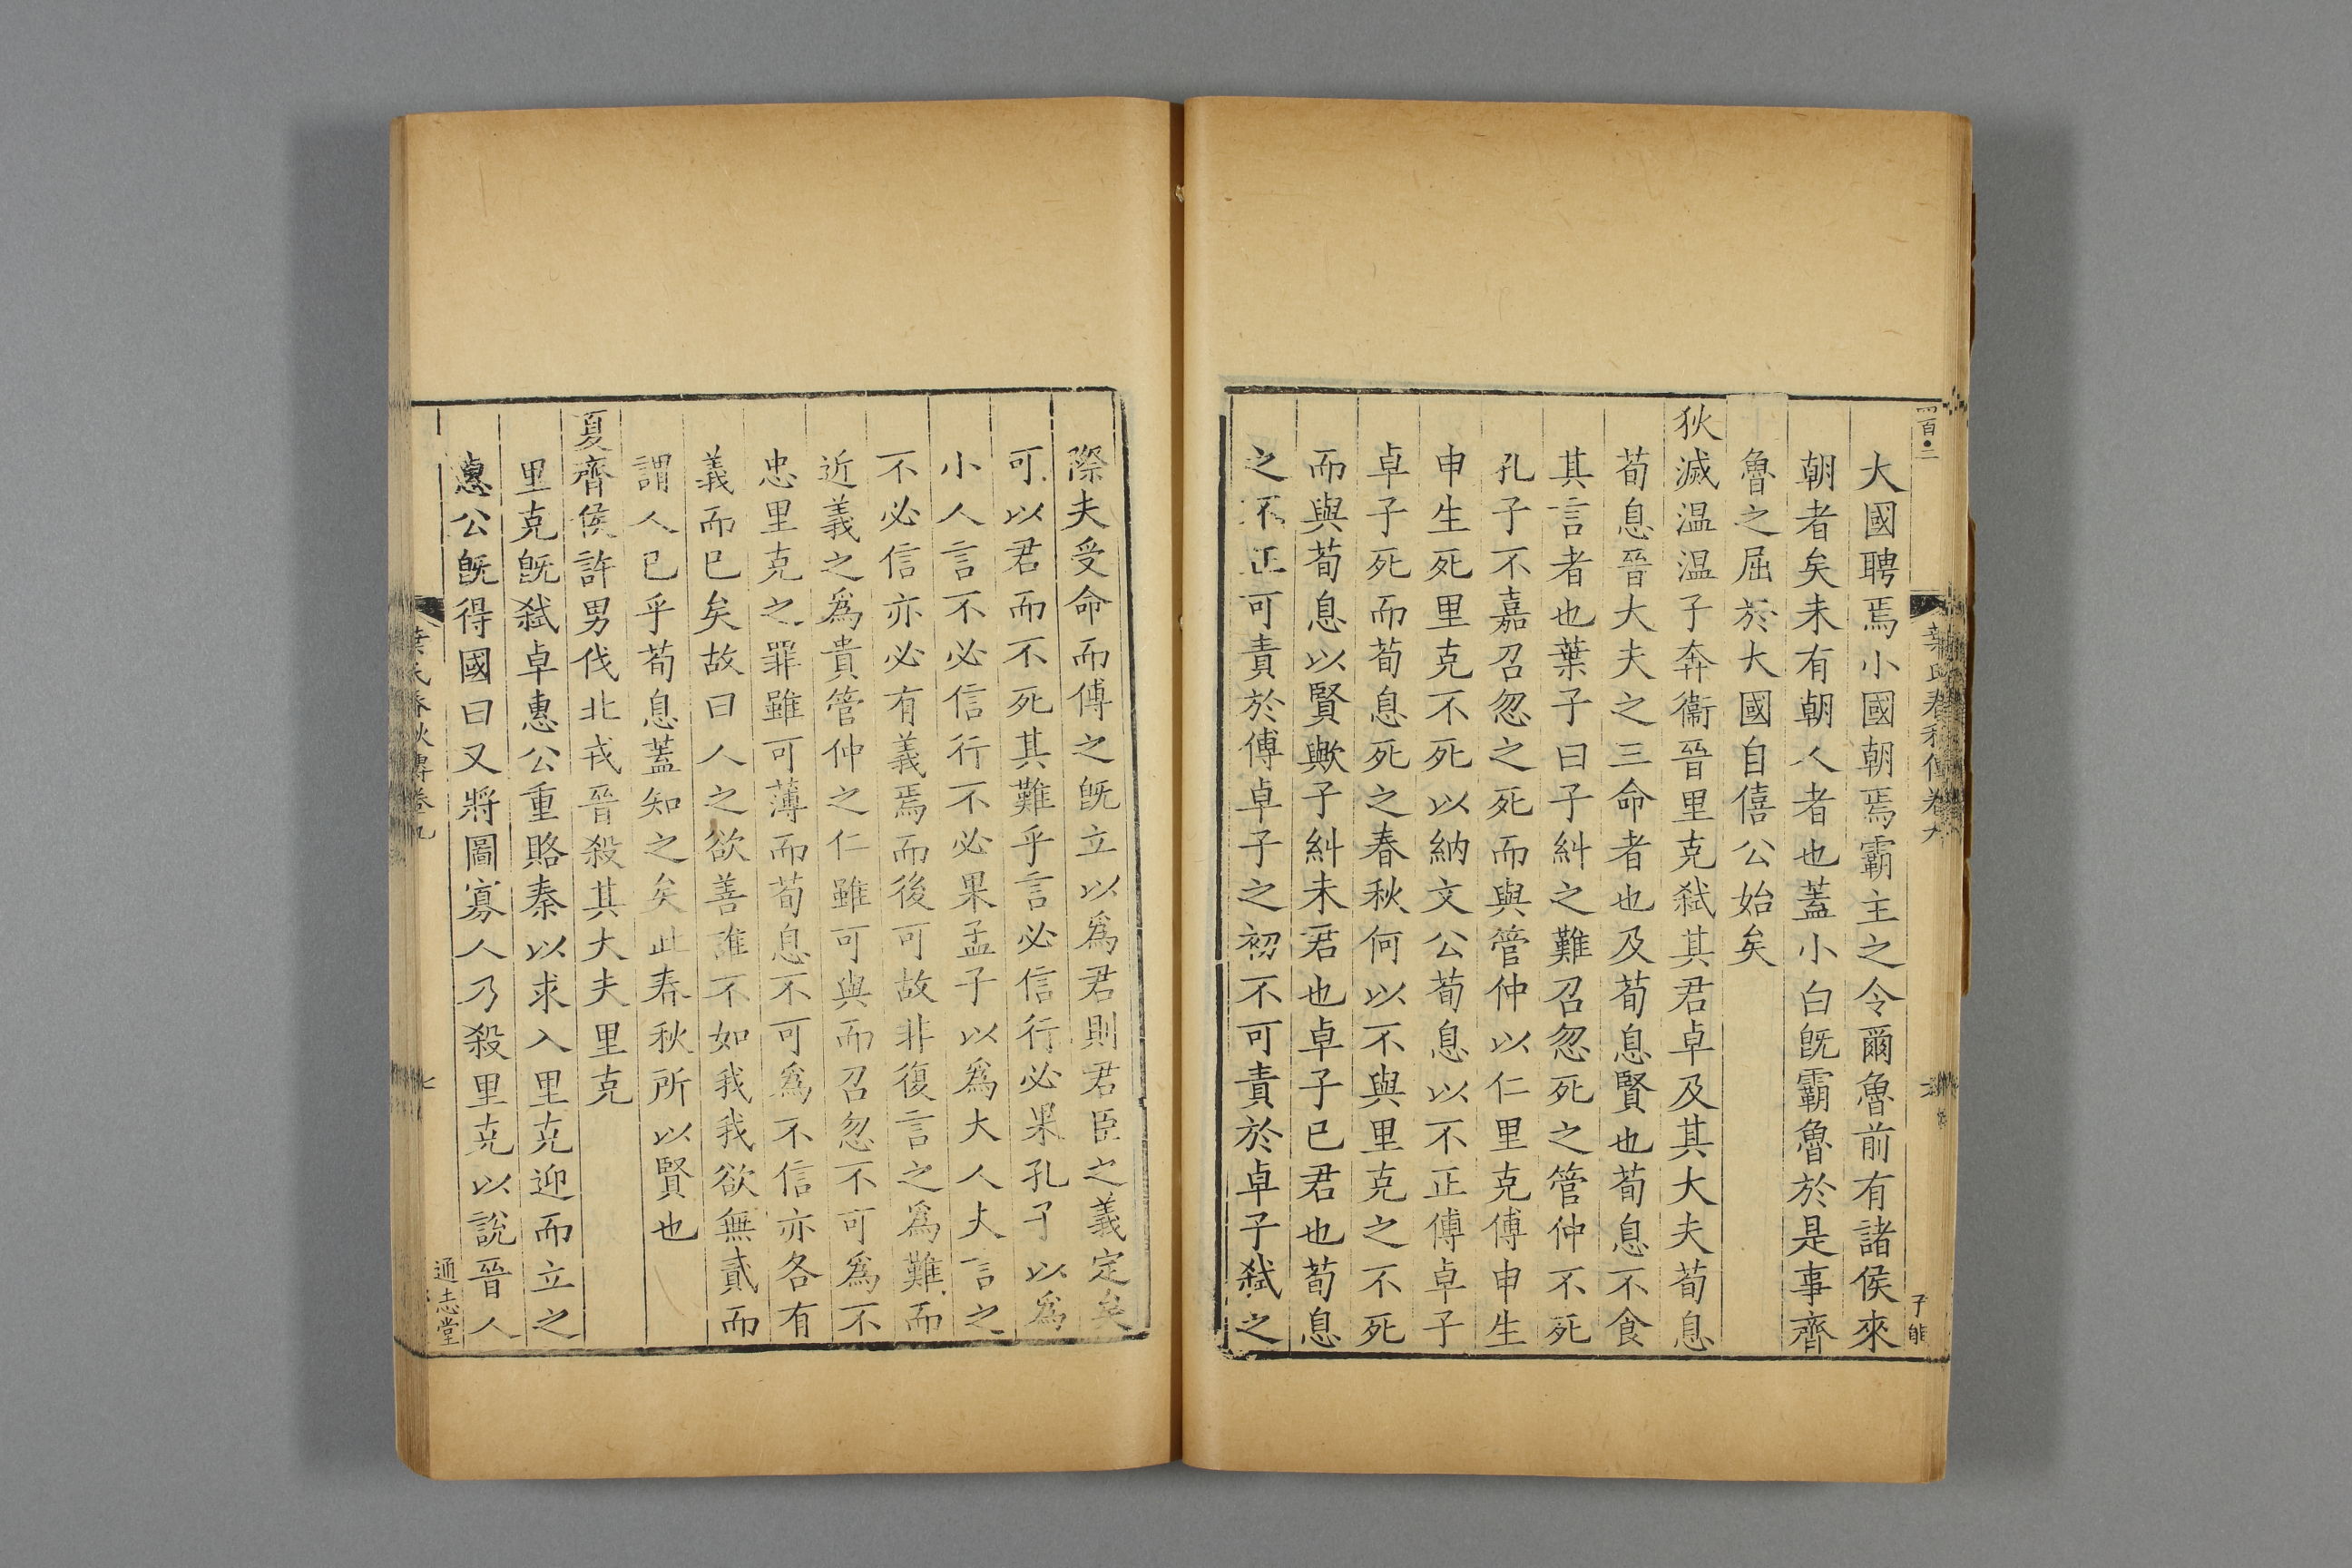 大國聘焉小國朝焉霸主之令爾魯前有諸侯來
朝者矣未有朝人者也蓋小白旣霸魯於是事齊
魯之屈於大國自僖公始矣
狄滅温温子奔衞晉里克弑其君卓及其大夫荀息
荀息晉大夫之三命者也及荀息賢也荀息不食
其言者也葉子曰子糾之難召忽死之管仲不死
孔子不嘉召忽之死而與管仲以仁里克傅申生
申生死里克不死以納文公荀息以不正傅卓子
卓子死而荀息死之春秋何以不與里克之不死
而與荀息以賢歟子糾未君也卓子已君也荀息
之不正可責於傅卓子之初不可責於卓子弑之
際夫受命而傅之旣立以爲君則君臣之義定矣
可以君而不死其難乎言必信行必果孔子以爲
小人言不必信行不必果孟子以爲大人大言之
不必信亦必有義焉而後可故非復言之爲難而
近義之爲貴管仲之仁雖可與而召忽不可爲不
忠里克之罪雖可薄而荀息不可爲不信亦各有
義而已矣故曰人之欲善誰不如我我欲無貳而
謂人已乎荀息蓋知之矣此春秋所以賢也
夏齊侯許男伐北戎晉殺其大夫里克
里克旣弑卓惠公重賂秦以求入里克迎而立之
惠公旣得國曰又將圖寡人乃殺里克以說晉人
葉氏春秋傳卷九
通志堂